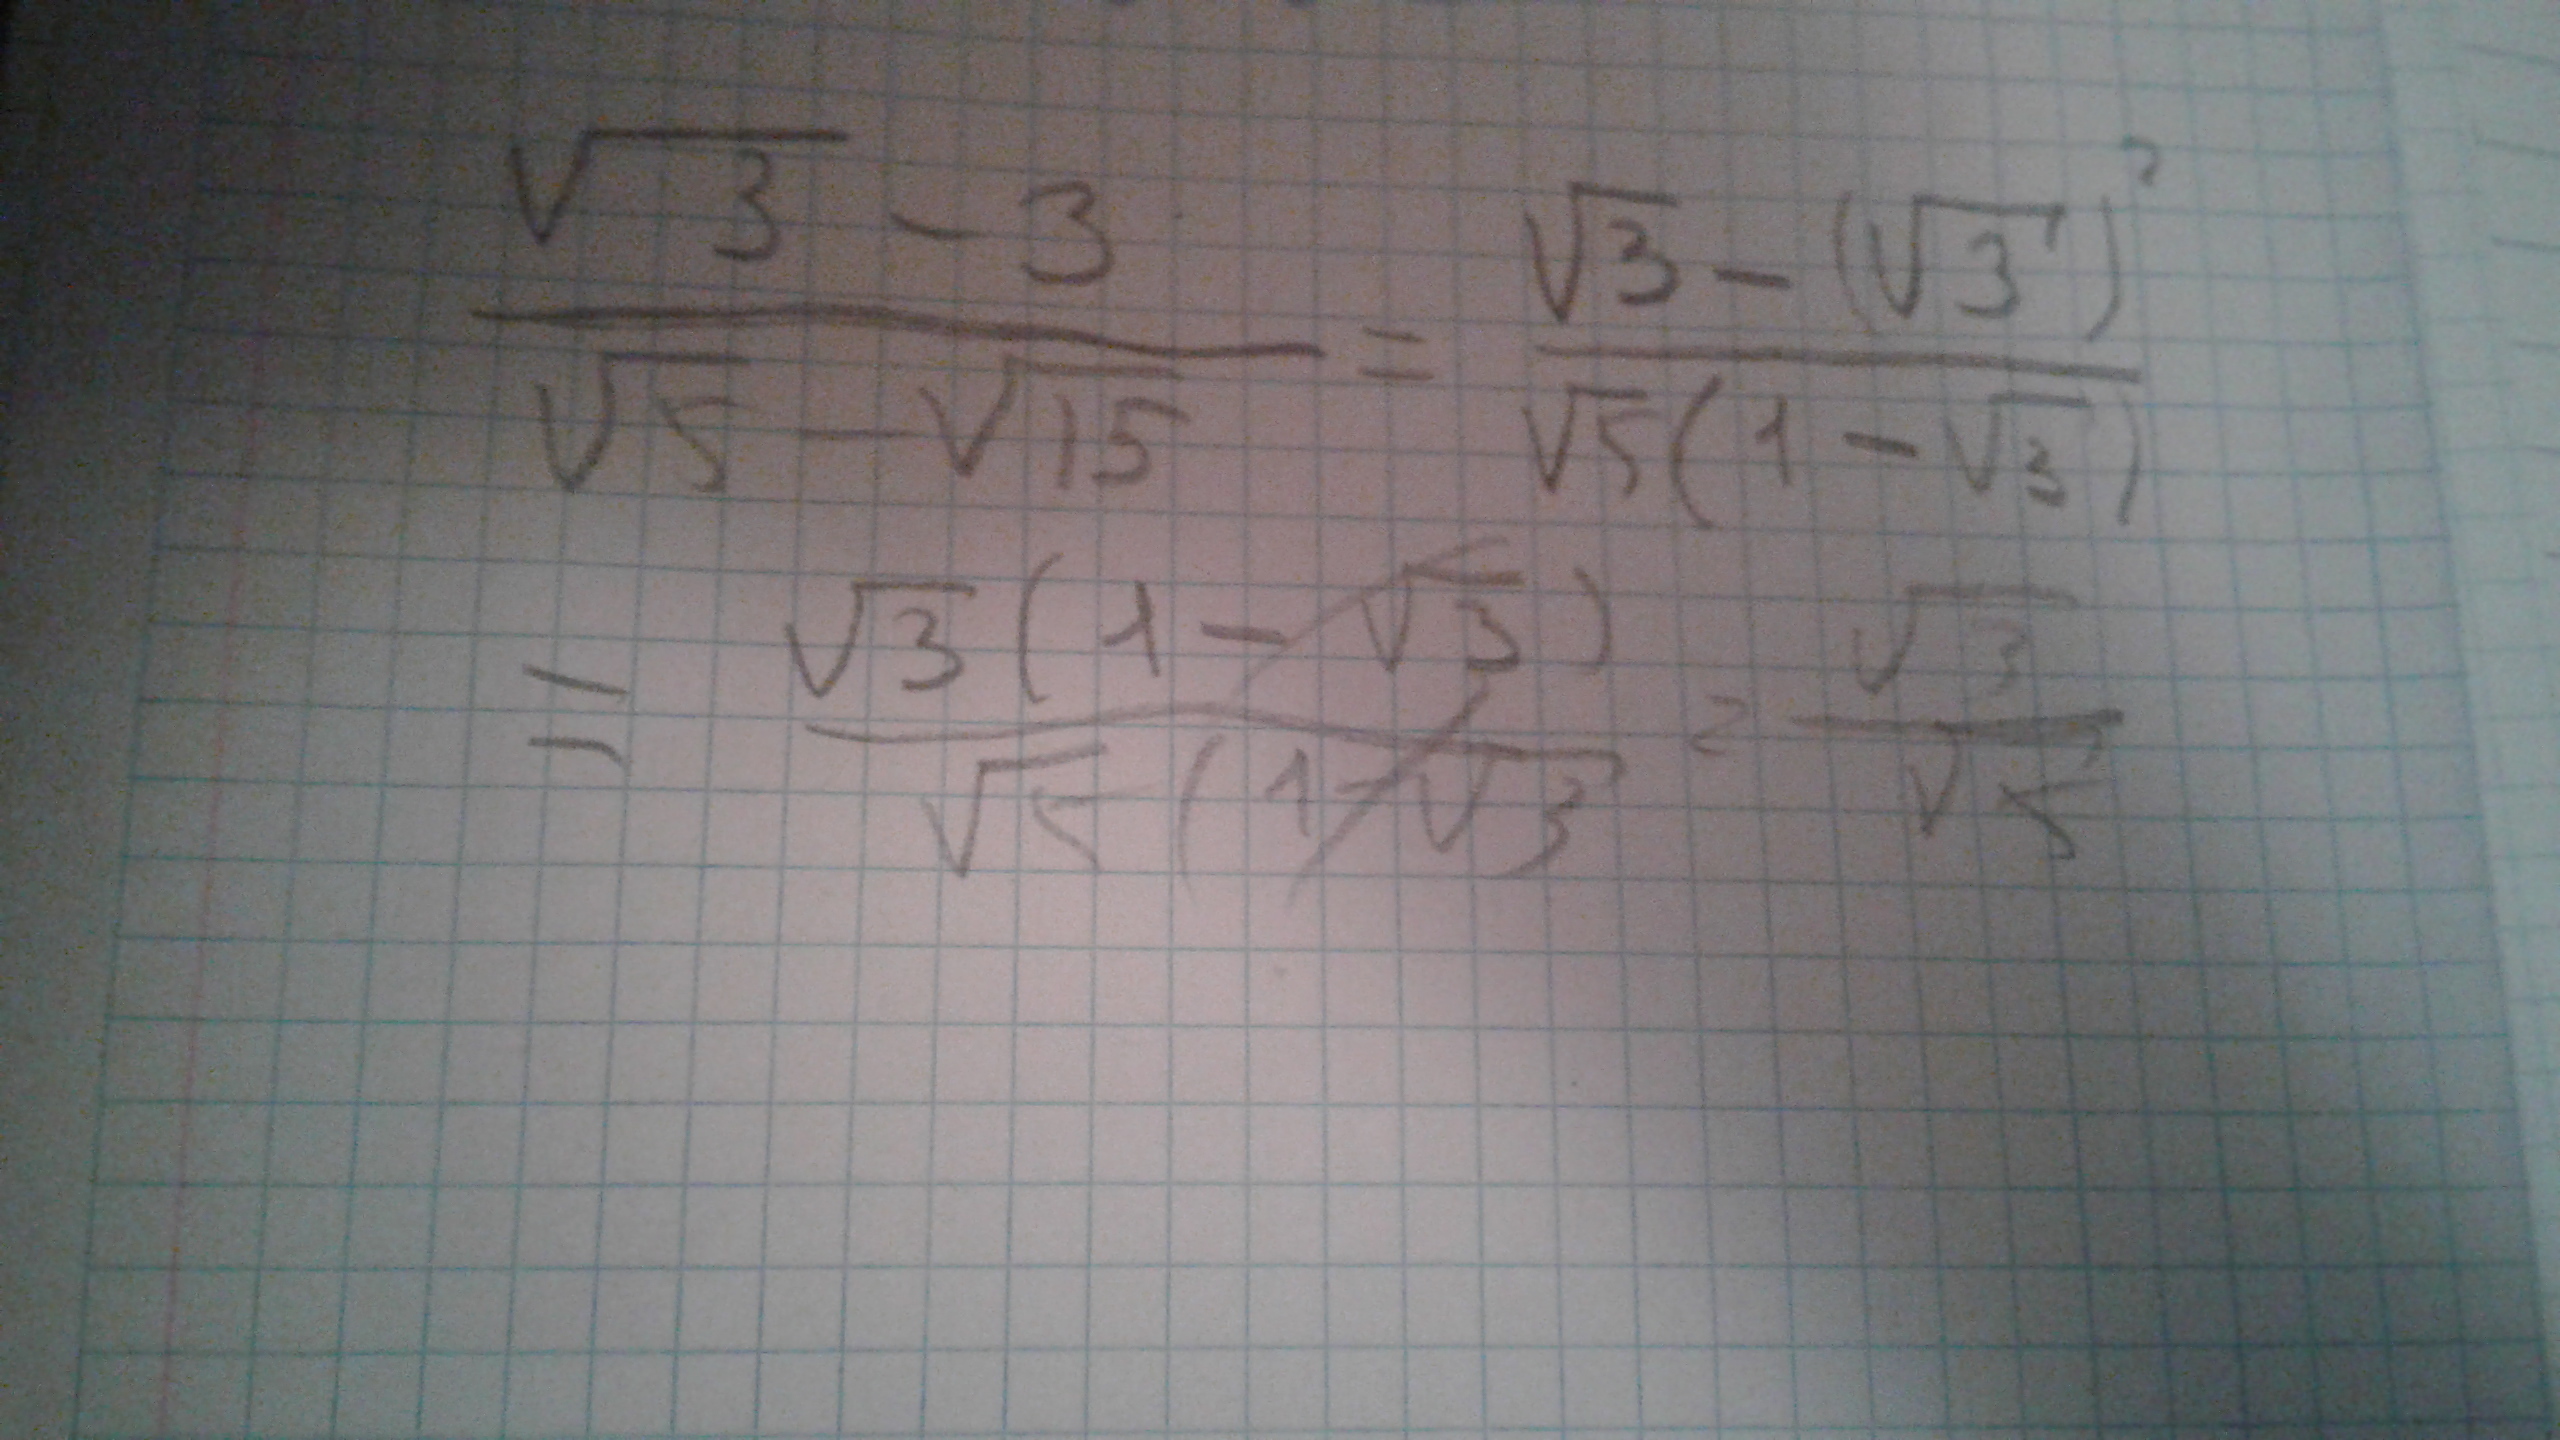 (√3 - 3)/(√5 - √15) = (√3 - (√3)²)/(√5(1 - √3))
= (√3(1 - √3))/(√5(1 - √3)) = √3/√5